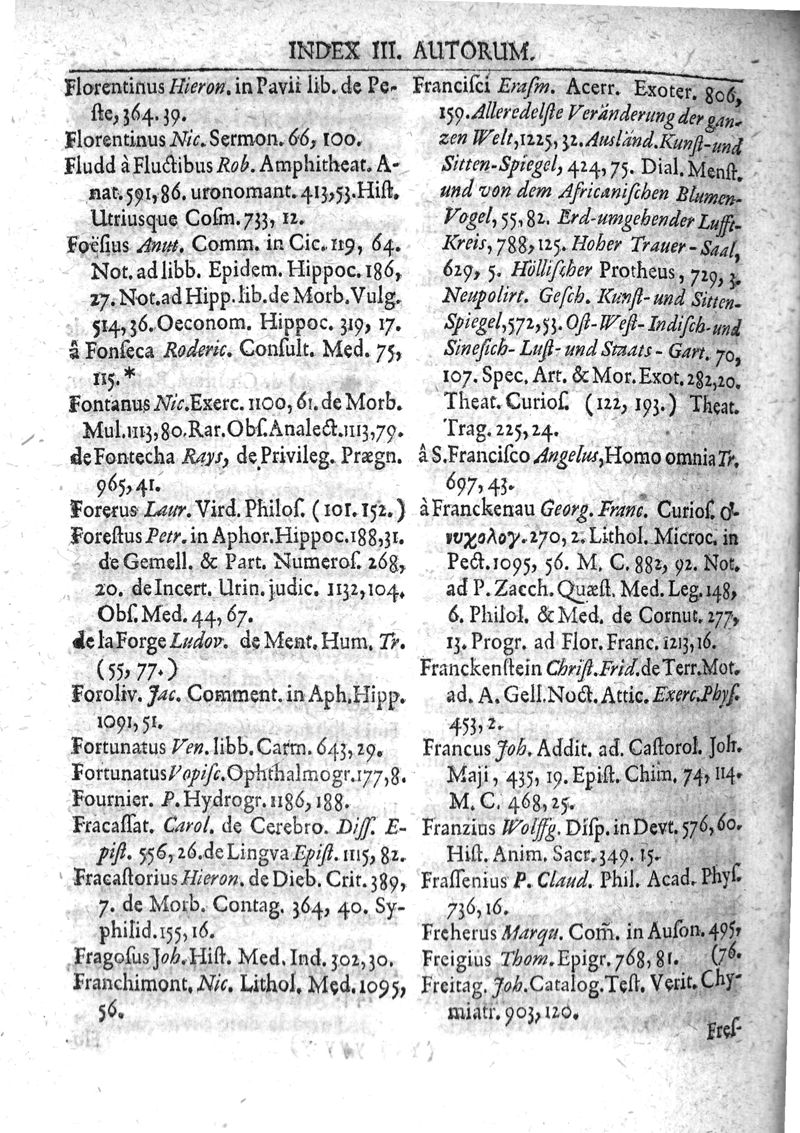 INDEX III. AUTORUM.
Florentinus Hieron. in Pavii lib. de Pe-
ſte, 364. 39.
Florentinus Nic. Sermon. 66, 100.
Fludd à Fluctibus Rob. Amphitheat. A-
nat. 591, 86. uronomant. 413, 53. Hiſt.
Utriusque Coſm. 733, 12.
Foëſius Anut. Comm. in Cic. 119, 64.
Not. ad libb. Epidem. Hippoc. 186,
27. Not. ad Hipp. lib. de Morb. Vulg.
514, 36. Oeconom. Hippoc. 319, 17.
â Fonſeca Roderic. Conſult. Med. 75,
115. *
Fontanus Nic. Exerc. 1100, 61. de Morb.
Mul. 1113, 80. Rar. Obſ. Analect. 1113, 79.
de Fontecha Rays, de Privileg. Prægn.
965, 41.
Forerus Laur. Vird. Philoſ. (101. 152.)
Foreſtus Petr. in Aphor. Hippoc. 188, 31.
de Gemell. & Part. Numeroſ. 268,
20. de Incert. Urin. judic. 1132, 104.
Obſ. Med. 44, 67.
de la Forge Ludov. de Ment. Hum. Tr.
(55, 77.)
Foroliv. Jac. Comment. in Aph. Hipp.
1091, 51.
Fortunatus Ven. libb. Carm. 643, 29.
Fortunatus Vopiſc. Ophthalmogr. 177, 8.
Fournier. P. Hydrogr. 1186, 188.
Fracaſſat. Carol. de Cerebro. Diſſ. E-
piſt. 556, 26. de Lingva Epiſt. 1115, 82.
Fracaſtorius Hieron. de Dieb. Crit. 389,
7. de Morb. Contag. 364, 40. Sy-
philid. 155, 16.
Fragoſus Joh. Hiſt. Med. Ind. 302, 30.
Franchimont. Nic. Lithol. Med. 1095,
56.
Franciſci Eraſm. Acerr. Exoter. 806,
159. Alleredelſte Veränderung der gan-
zen Welt, 1225, 32. Ausländ. Kunſt-und
Sitten-Spiegel, 424, 75. Dial. Menſt.
und von dem Africaniſchen Blumen-
Vogel, 55, 82. Erd-umgebender Lufft-
Kreis, 788, 125. Hoher Trauer-Saal,
629, 5. Hölliſcher Protheus, 729, 3.
Neupolirt. Geſch. Kunſt-und Sitten-
Spiegel, 572, 53. Oſt-Weſt-Indiſch-und
Sineſich-Luſt-und Staats-Gart. 70,
107. Spec. Art. & Mor. Exot. 282, 20.
Theat. Curioſ. (122, 193.) Theat.
Trag. 225, 24.
â S. Franciſco Angelus, Homo omnia Tr.
697, 43.
à Franckenau Georg. Franc. Curioſ. ὀ-
νυχολογ. 270, 2. Lithol. Microc. in
Pect. 1095, 56. M. C. 882, 92. Not.
ad P. Zacch. Quæſt. Med. Leg. 148,
6. Philol. & Med. de Cornut. 277,
13. Progr. ad Flor. Franc. 1213, 16.
Franckenſtein Chriſt. Frid. de Terr. Mot.
ad. A. Gell. Noct. Attic. Exerc. Phyſ.
453, 2.
Francus Joh. Addit. ad. Caſtorol. Joh.
Maji, 435, 19. Epiſt. Chim. 74, 114.
M. C. 468, 25.
Franzius Wolffg. Diſp. in Devt. 576, 60.
Hiſt. Anim. Sacr. 349. 15.
Fraſſenius P. Claud. Phil. Acad. Phyſ.
736, 16.
Freherus Marqu. Com̃. in Auſon. 495,
Freigius Thom. Epigr. 768, 81. (76.
Freitag. Joh. Catalog. Teſt. Verit. Chy-
miatr. 903, 120.
Freſ-